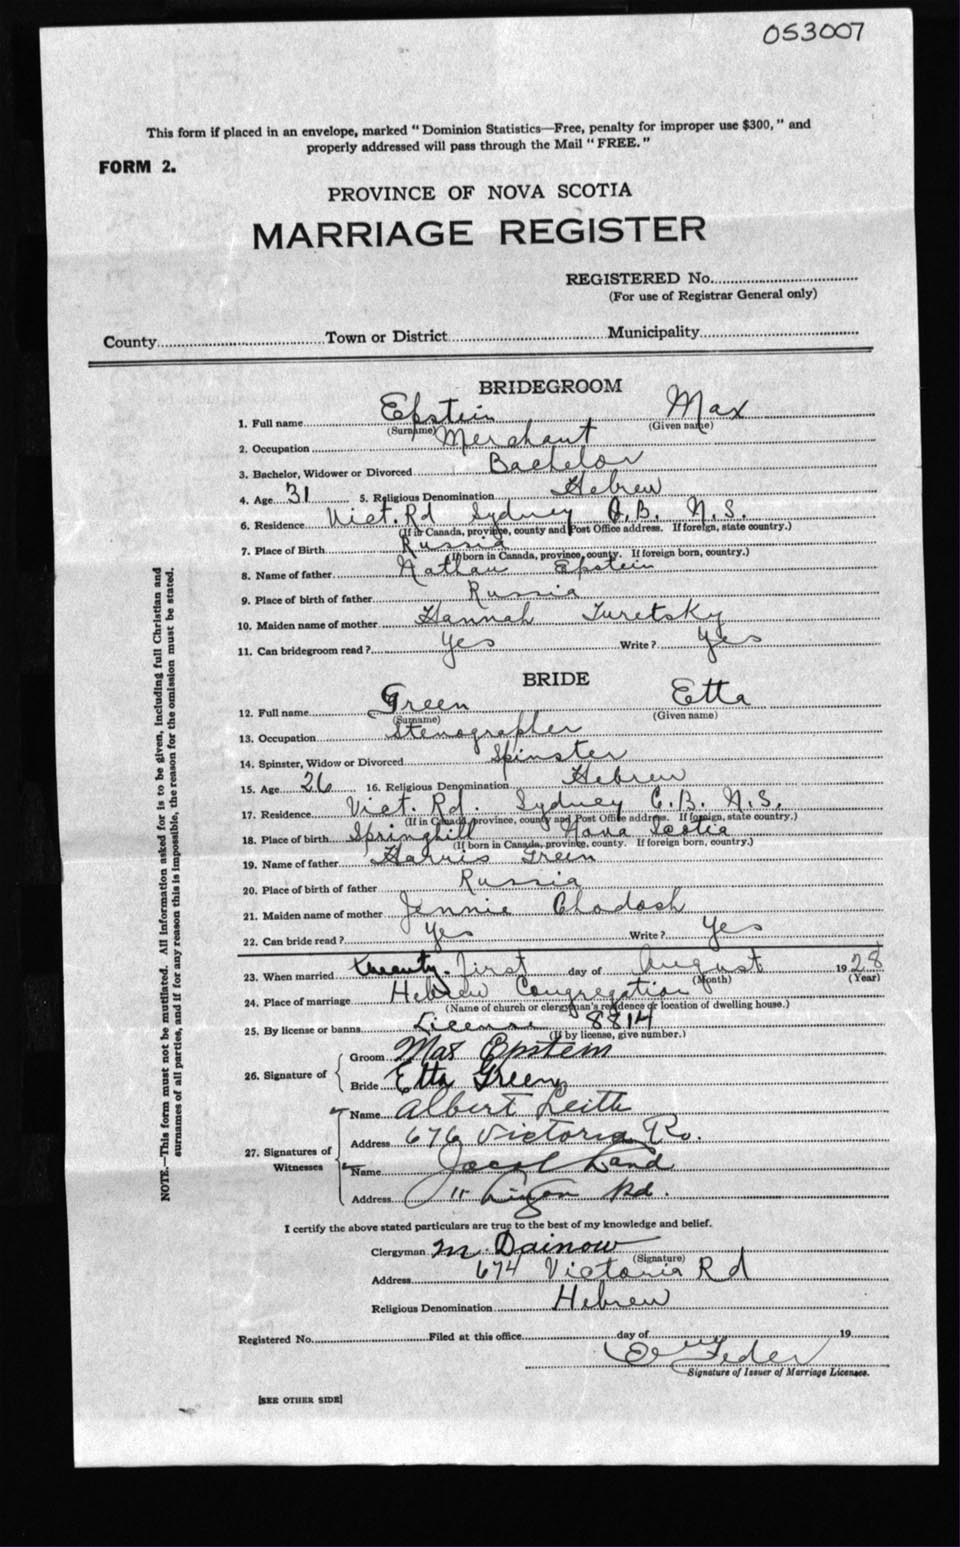 053007
This form if placed in an envelope, marked "Dominion Statistics—Free, penalty for improper use $300," and
properly addressed will pass through the Mail "FREE."
FORM 2.
PROVINCE OF NOVA SCOTIA
MARRIAGE REGISTER
REGISTERED No.
(For use of Registrar General only)
County Town or District Municipality
BRIDEGROOM
1. Full name Epstein Max
(Surname) (Given name)
2. Occupation Merchant
3. Bachelor, Widower or Divorced Bachelor
4. Age 31 5. Religious Denomination Hebrew
6. Residence Vict. Rd Sydney C.B. N.S.
(If in Canada, province, county and Post Office address. If foreign, state country.)
7. Place of Birth Russia
(If born in Canada, province, county. If foreign born, country.)
8. Name of father Nathan Epstein
9. Place of birth of father Russia
10. Maiden name of mother Hannah Turetsky
11. Can bridegroom read? Yes Write? Yes
BRIDE
12. Full name Green Etta
(Surname) (Given name)
13. Occupation Stenographer
14. Spinster, Widow or Divorced Spinster
15. Age 26 16. Religious Denomination Hebrew
17. Residence Vict. Rd. Sydney C.B. N.S.
(If in Canada, province, county and Post Office address. If foreign, state country.)
18. Place of birth Springhill Nova Scotia
(If born in Canada, province, county. If foreign born, country.)
19. Name of father Harris Green
20. Place of birth of father Russia
21. Maiden name of mother Jennie Chodosh
22. Can bride read? Yes Write? Yes
23. When married twenty-first day of August 1928
(Month) (Year)
24. Place of marriage Hebrew Congregation
(Name of church or clergyman's residence or location of dwelling house.)
25. By license or banns License 8814
(If by license, give number.)
26. Signature of Groom Max Epstein
Bride Etta Green
27. Signatures of Witnesses
Name Albert Leith
Address 676 Victoria Rd.
Name Jacob Land
Address 11 Rd.
I certify the above stated particulars are true to the best of my knowledge and belief.
Clergyman M. Dainow
(Signature)
Address 674 Victoria Rd
Religious Denomination Hebrew
Registered No. Filed at this office day of 19
Feder
Signature of Issuer of Marriage Licenses.
[SEE OTHER SIDE]
NOTE.—This form must not be mutilated. All information asked for is to be given, including full Christian and
surnames of all parties, and if for any reason this is impossible, the reason for the omission must be stated.